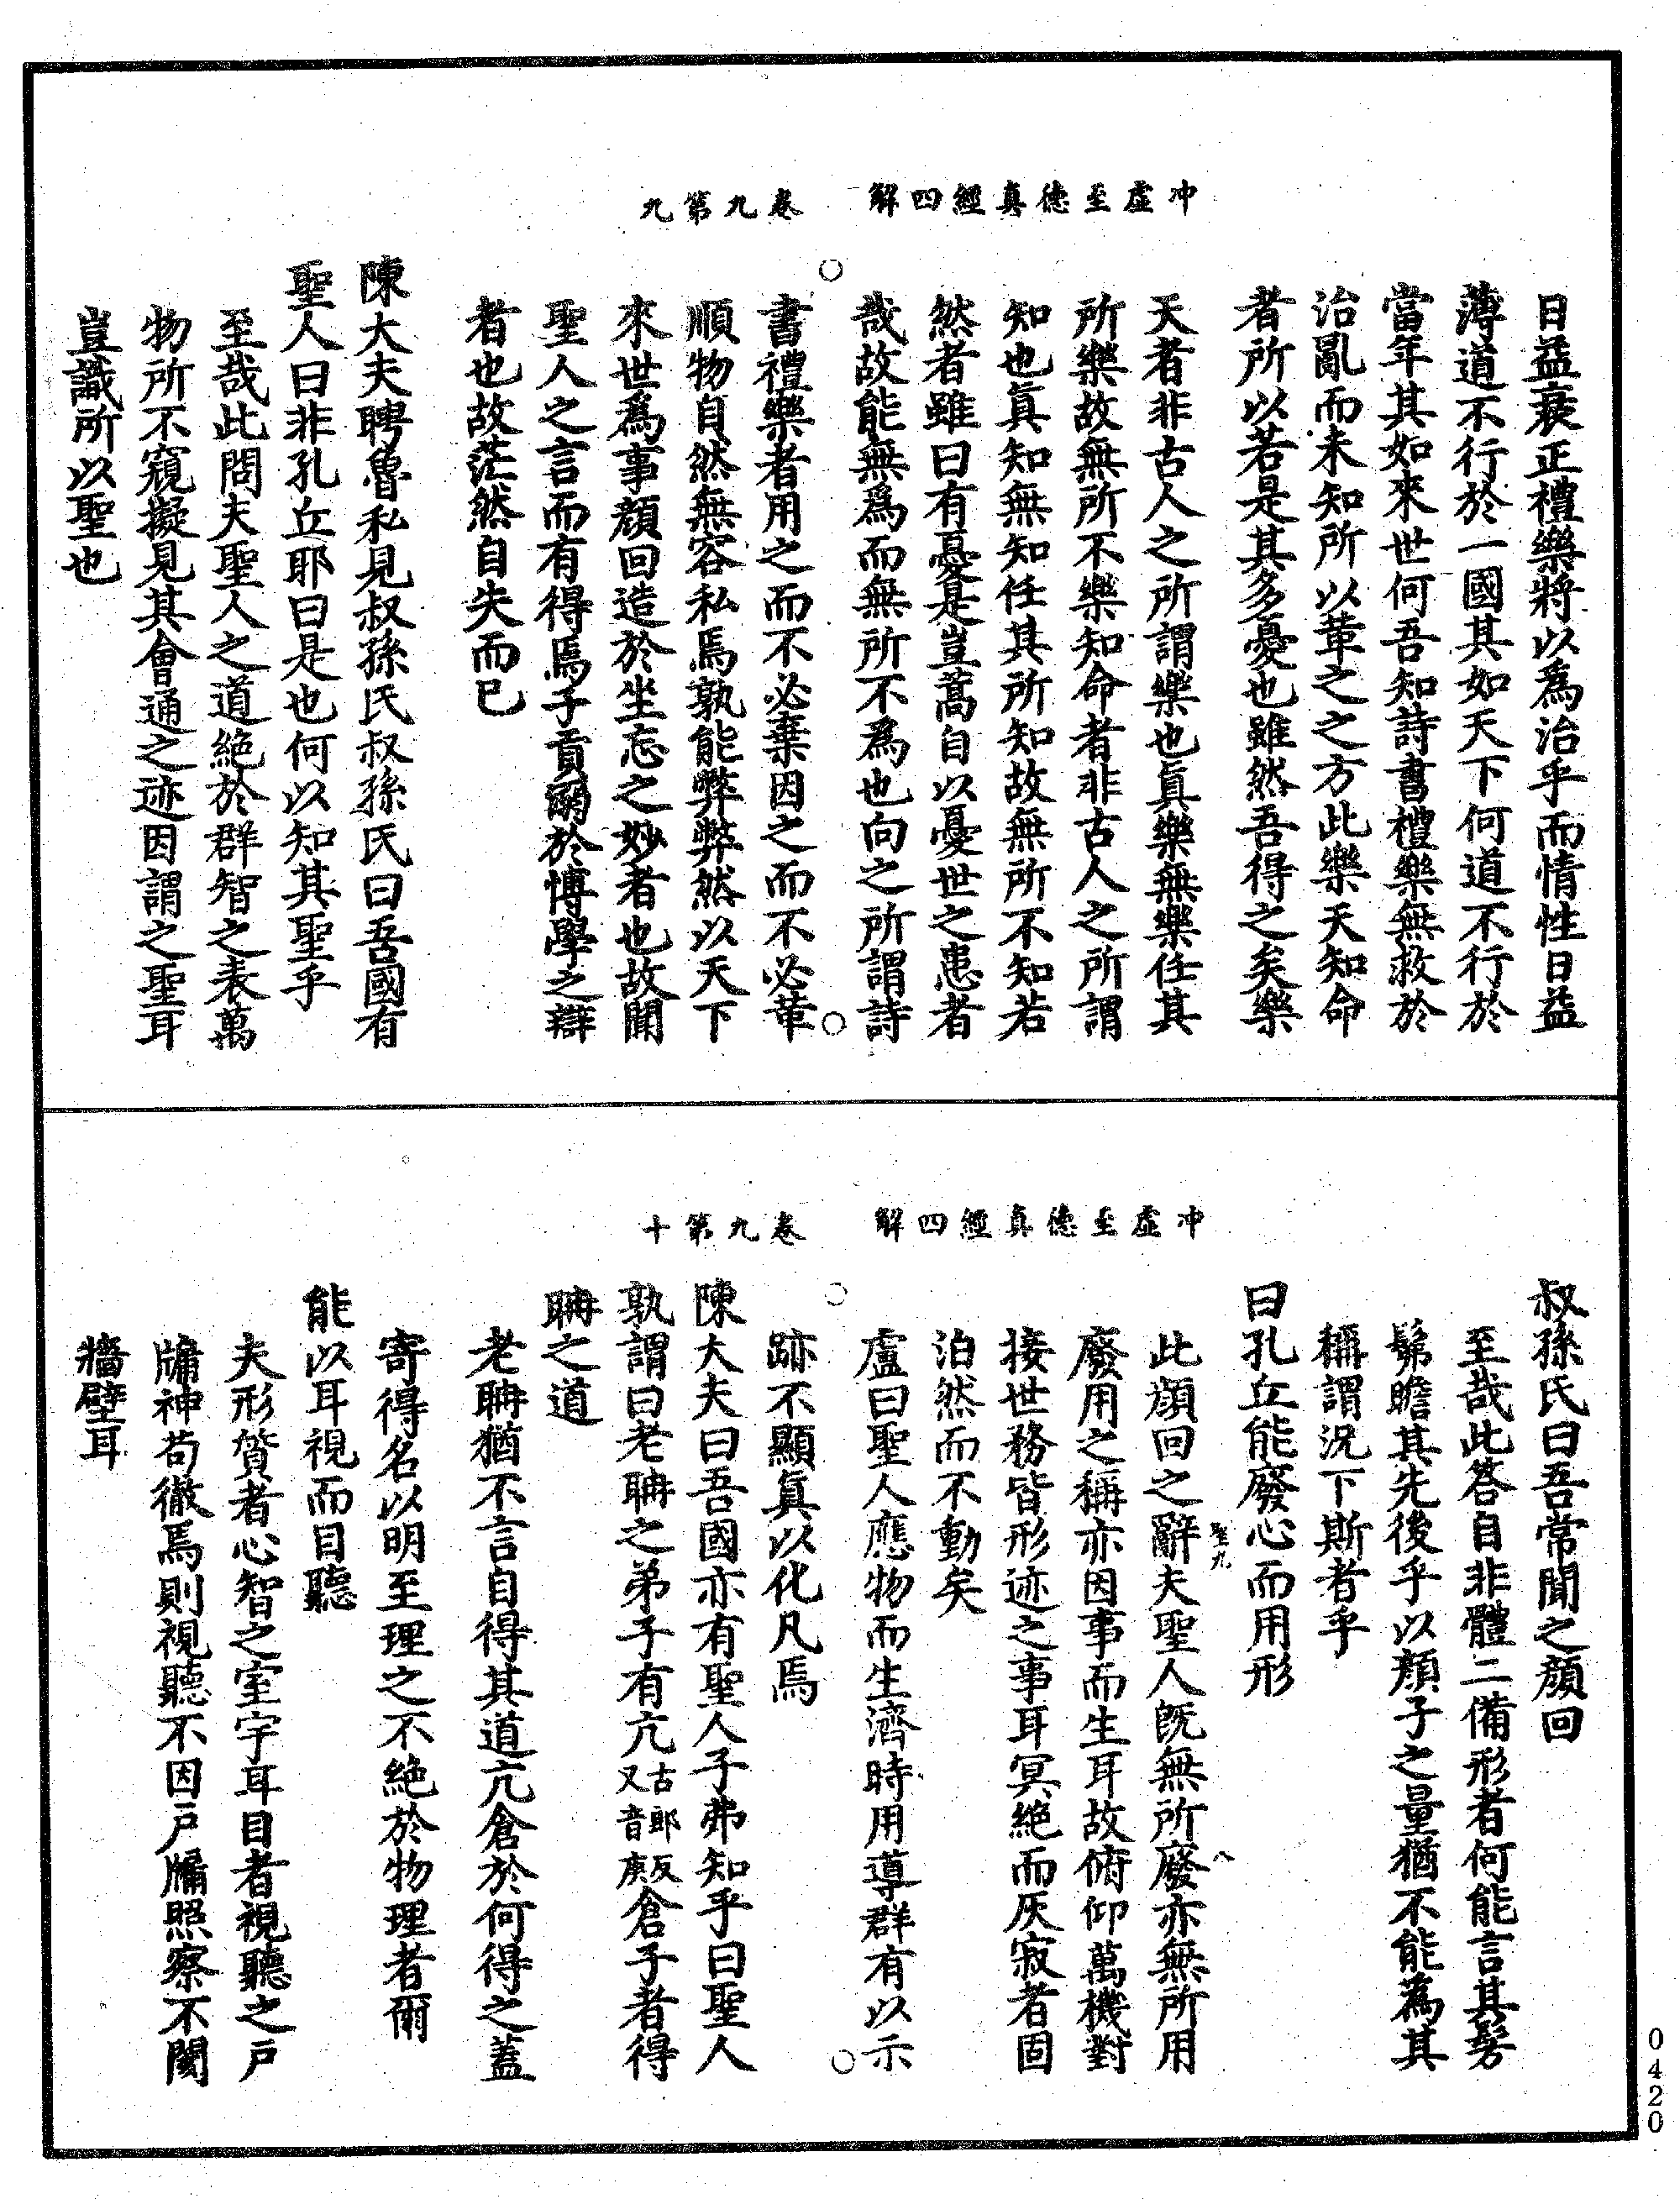 冲虛至德真經四解　卷九第九
日益衰正禮樂將以爲治乎而情性日益
薄道不行於一國其如天下何道不行於
當年其如來世何吾知詩書禮樂無救於
治亂而未知所以革之之方此樂天知命
者所以若是其多憂也雖然吾得之矣樂
天者非古人之所謂樂也真樂無樂任其
所樂故無所不樂知命者非古人之所謂
知也真知無知任其所知故無所不知若
然者雖曰有憂是豈蒿目以憂世之患者
哉故能無爲而無所不爲也向之所謂詩
書禮樂者用之而不必棄因之而不必革
順物自然無容私焉孰能弊弊然以天下
來世爲事顏回造於坐忘之妙者也故聞
聖人之言而有得焉子貢溺於博學之辯
者也故茫然自失而已
陳大夫聘魯私見叔孫氏叔孫氏曰吾國有
聖人曰非孔丘耶曰是也何以知其聖乎
至哉此問夫聖人之道絕於群智之表萬
物所不窺擬見其會通之迹因謂之聖耳
豈識所以聖也
冲虛至德真經四解　卷九第十
叔孫氏曰吾常聞之顏回
至哉此答自非體二備形者何能言其髣
髴瞻其先後乎以顏子之量猶不能爲其
稱謂況下斯者乎
曰孔丘能廢心而用形
此顏回之辭夫聖人既無所廢亦無所用
廢用之稱亦因事而生耳故俯仰萬機對
接世務皆形迹之事耳冥絕而灰寂者固
泊然而不動矣
盧曰聖人應物而生濟時用導群有以示
跡不顯真以化凡焉
陳大夫曰吾國亦有聖人子弗知乎曰聖人
孰謂曰老聃之弟子有亢古郎反又音庚倉子者得
聃之道
老聃猶不言自得其道亢倉於何得之蓋
寄得名以明至理之不絕於物理者爾
能以耳視而目聽
夫形質者心智之室宇耳目者視聽之戶
牖神苟徹焉則視聽不因戶牖照察不閡
牆壁耳
聖九
八
0420